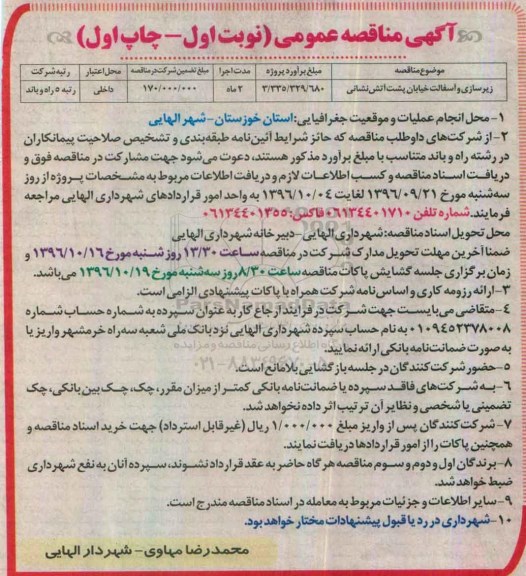 آگهی مناقصه عمومی (نوبت اول - چاپ اول)
موضوع مناقصه | مبلغ برآورد پروژه | مدت اجرا | مبلغ تضمین شرکت در مناقصه | محل اعتبار | رتبه شرکت
زیرسازی و آسفالت خیابان پشت آتش نشانی | ۳/۳۳۵/۳۲۹/۶۸۰ | ۲ ماه | ۱۷۰/۰۰۰/۰۰۰ | داخلی | رتبه ۵ راه و باند
۱- محل انجام عملیات و موقعیت جغرافیایی: استان خوزستان- شهر الهایی
۲- از شرکت‌های داوطلب مناقصه که حائز شرایط آئین‌نامه طبقه‌بندی و تشخیص صلاحیت پیمانکاران
در رشته راه و باند متناسب با مبلغ برآورد مذکور هستند، دعوت می‌شود جهت مشارکت در مناقصه فوق و
دریافت اسناد مناقصه و کسب اطلاعات لازم و دریافت اطلاعات مربوط به مشخصات پروژه از روز
سه‌شنبه مورخ ۱۳۹۶/۰۹/۲۱ لغایت ۱۳۹۶/۱۰/۰۴ به واحد امور قراردادهای شهرداری الهایی مراجعه
فرمایند. شماره تلفن ۰۶۱۳۴۴۰۱۷۱۰ فاکس: ۰۶۱۳۴۴۰۱۳۵۵
محل تحویل اسناد مناقصه: شهرداری الهایی- دبیرخانه شهرداری الهایی
ضمنا آخرین مهلت تحویل مدارک شرکت در مناقصه ساعت ۱۳/۳۰ روز شنبه مورخ ۱۳۹۶/۱۰/۱۶ و
زمان برگزاری جلسه گشایش پاکات مناقصه ساعت ۸/۳۰ روز سه‌شنبه مورخ ۱۳۹۶/۱۰/۱۹ می‌باشد.
۳- ارائه رزومه کاری و اساس نامه شرکت همراه با پاکات پیشنهادی الزامی است.
۴- متقاضی می‌بایست جهت شرکت در فرآیند ارجاع کار به عنوان سپرده به شماره حساب شماره
۰۱۰۹۴۵۲۳۷۸۰۰۸ به نام حساب سپرده شهرداری الهایی نزد بانک ملی شعبه سه راه خرمشهر واریز یا
به صورت ضمانت‌نامه بانکی ارائه نمایید.
۵- حضور شرکت‌کنندگان در جلسه بازگشایی بلامانع است.
۶- به شرکت‌های فاقد سپرده یا ضمانت‌نامه بانکی کمتر از میزان مقرر، چک، چک بین بانکی، چک
تضمینی یا شخصی و نظایر آن ترتیب اثر داده نخواهد شد.
۷- شرکت‌کنندگان پس از واریز مبلغ ۱/۰۰۰/۰۰۰ ریال (غیرقابل استرداد) جهت خرید اسناد مناقصه و
همچنین پاکات را از امور قراردادها دریافت نمایند.
۸- برندگان اول و دوم و سوم مناقصه هر گاه حاضر به عقد قرارداد نشوند، سپرده آنان به نفع شهرداری
ضبط خواهد شد.
۹- سایر اطلاعات و جزئیات مربوط به معامله در اسناد مناقصه مندرج است.
۱۰- شهرداری در رد یا قبول پیشنهادات مختار خواهد بود.
محمدرضا مهاوی- شهردار الهایی